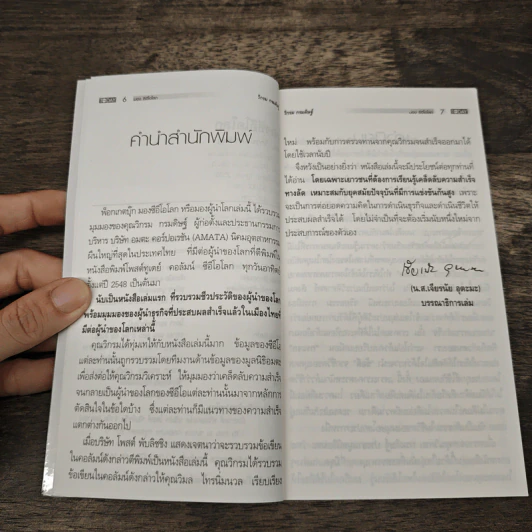 6
คำนำสำนักพิมพ์
พ็อกเกตบุ๊ก มองซีอีโอโลก หรือมองผู้นำโลกเล่มนี้ ได้รวบรวม
มุมมองของคุณวิกรม กรมดิษฐ์ ผู้ก่อตั้งและประธานกรรมการ
บริหาร บริษัท อมตะ คอร์ปอเรชัน (AMATA) นิคมอุตสาหกรรม
ผืนใหญ่ที่สุดในประเทศไทย ที่มีต่อผู้นำของโลกที่ตีพิมพ์ใน
หนังสือพิมพ์โพสต์ทูเดย์ คอลัมน์ ซีอีโอโลก ทุกวันอาทิตย์
ตั้งแต่ปี 2548 เป็นต้นมา
นับเป็นหนังสือเล่มแรก ที่รวบรวมชีวประวัติของผู้นำของโลก
พร้อมมุมมองของผู้นำธุรกิจที่ประสบผลสำเร็จแล้วในเมืองไทยที่
มีต่อผู้นำของโลกเหล่านี้
คุณวิกรมได้ทุ่มเทให้กับหนังสือเล่มนี้มาก ข้อมูลของซีอีโอ
แต่ละท่านนั้นถูกรวบรวมโดยทีมงานด้านข้อมูลของมูลนิธิอมตะ
เพื่อส่งต่อให้คุณวิกรมวิเคราะห์ ให้มุมมองว่าเคล็ดลับความสำเร็จ
จนกลายเป็นผู้นำของโลกของซีอีโอแต่ละท่านนั้นมาจากหลักการ
ตัดสินใจในข้อใดบ้าง ซึ่งแต่ละท่านก็มีแนวทางของความสำเร็จ
แตกต่างกันออกไป
เมื่อบริษัท โพสต์ พับลิชชิง แสดงเจตนาว่าจะรวบรวมข้อเขียน
ในคอลัมน์ดังกล่าวตีพิมพ์เป็นหนังสือเล่มนี้ คุณวิกรมได้รวบรวม
ข้อเขียนในคอลัมน์ดังกล่าวให้คุณวิมล ไทรนิ่มนวล เรียบเรียง
วิกรม กรมดิษฐ์
7
ใหม่ พร้อมกับการตรวจทานจากคุณวิกรมจนสำเร็จออกมาได้
โดยใช้เวลานับปี
จึงหวังเป็นอย่างยิ่งว่า หนังสือเล่มนี้จะมีประโยชน์ต่อทุกท่านที่
ได้อ่าน โดยเฉพาะเยาวชนที่ต้องการเรียนรู้เคล็ดลับความสำเร็จ
ทางลัด เหมาะสมกับยุคสมัยปัจจุบันที่มีการแข่งขันกันสูง เพราะ
จะเป็นการต่อยอดความคิดในการดำเนินธุรกิจและดำเนินชีวิตให้
ประสบผลสำเร็จได้ โดยไม่จำเป็นที่จะต้องเริ่มนับหนึ่งใหม่จาก
ประสบการณ์ของตัวเอง
(น.ส.เจียรนัย อุตะมะ)
บรรณาธิการเล่ม